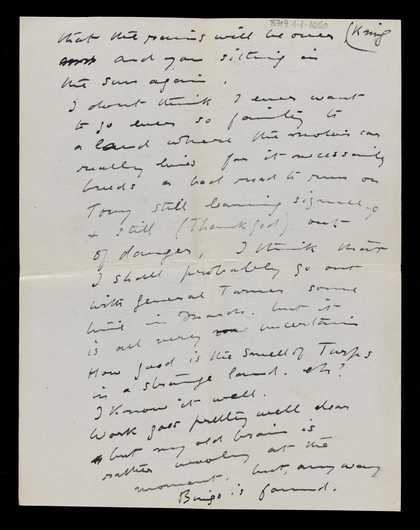 that the rains will be over (King
and you sitting in
the sun again.
I dont think I ever want
to go ever so faintly to
a land where the motor car
really lives for it necessarily
breeds a bad road to run on
Tony still learning signalling
& still (Thank god) out
of danger, I think that
I shall probably go out
with General Turner some
time in March. but it
is all very uncertain
How good is the smell of Turfs
in a strange land. eh?
I know it well.
Work goes pretty well dear
but my old brain is
rather wooley at the
moment. but, any way
is found.